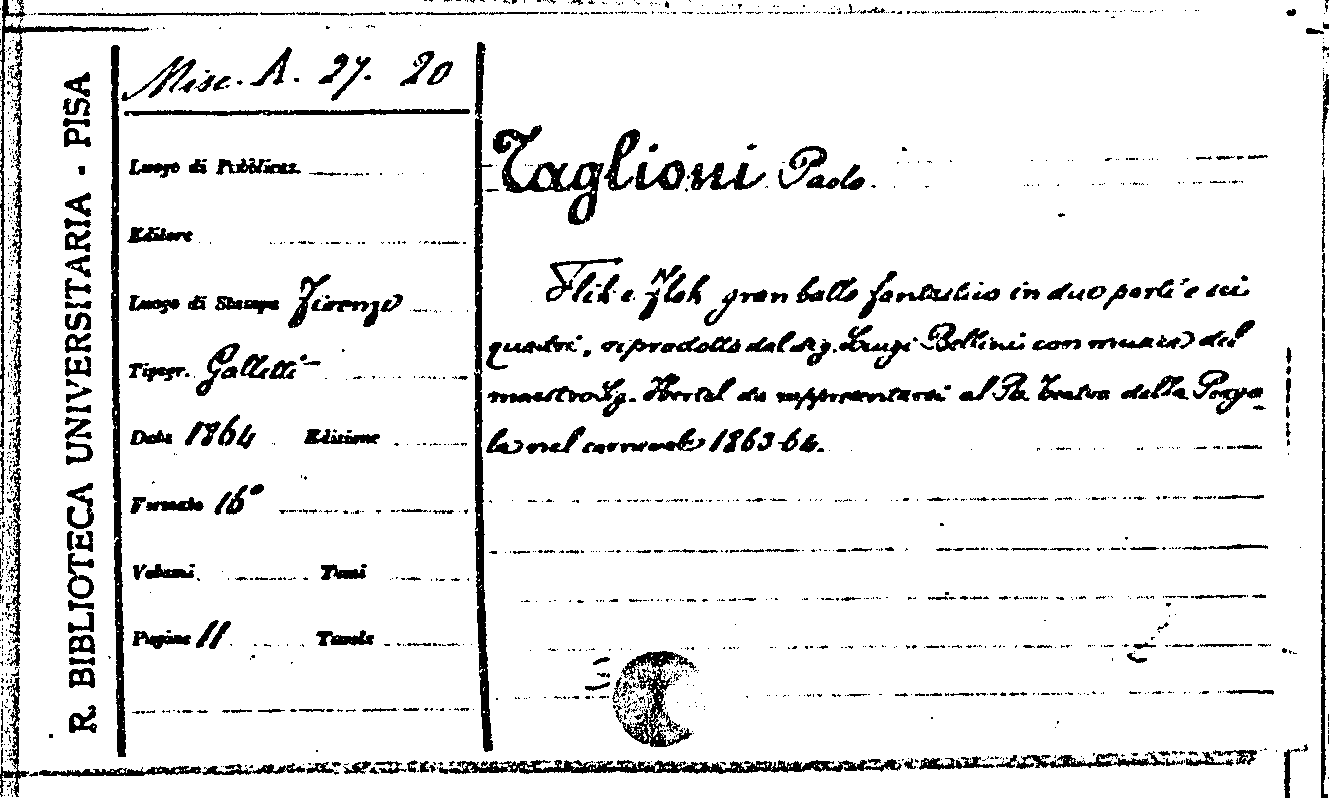 R. BIBLIOTECA UNIVERSITARIA - PISA
Misc. A. 27. 20
Luogo di Pubblicaz.
Editore
Luogo di Stampa Firenze
Tipogr. Galletti
Data 1864 Edizione
Formato 16°
Volumi Tomi
Pagine 11 Tavole
Taglioni Paolo.
Flik e Flok gran ballo fantastico in due parti e sei
quadri, riprodotto dal sig. Luigi Bellini con musica del
maestro Sig. Hertel da rappresentarsi al R. Teatro della Pergo-
la nel carnevale 1863-64.